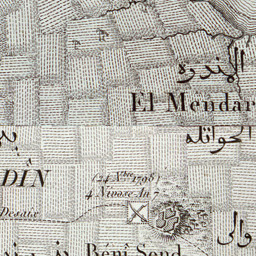 المندرة
El Mendar
الحواتله
DÎN
(24 Xbre 1798)
4 Nivose An 7
Desaix
والى
Bénî Sond